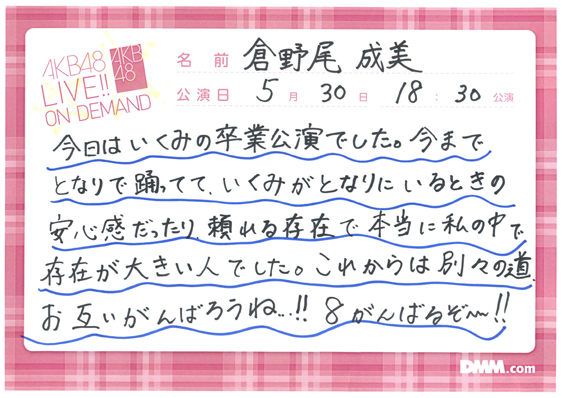 AKB48
LIVE!!
ON DEMAND
AKB
48
名前 倉野尾 成美
公演日 5月30日 18:30公演
今日はいくみの卒業公演でした。今まで
となりで踊ってて、いくみがとなりにいるときの
安心感だったり、頼れる存在で本当に私の中で
存在が大きい人でした。これからは別々の道、
お互いがんばろうね...!! 8がんばるぞ〜!!
DMM.com